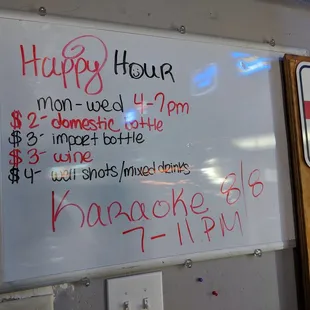 Happy Hour
mon-wed 4-7pm
$2- domestic bottle
$3- import bottle
$3- wine
$4- well shots/mixed drinks
Karaoke 8/8
7-11PM